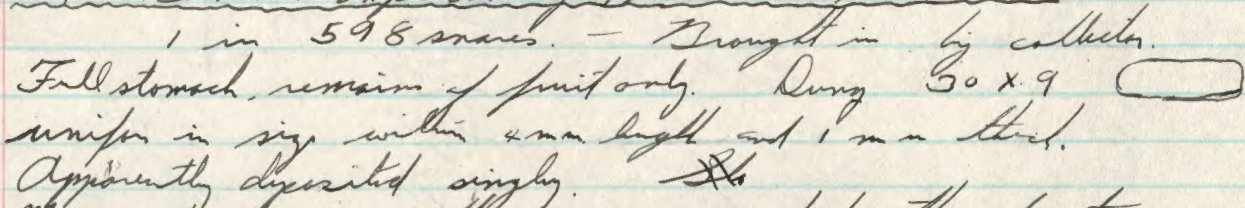 1 in 598 snares. – Brought in by collector.
Full stomach, remains of fruit only. Dung 30 x 9
uniform in size within 4 mm. length and 1 mm thick.
Apparently deposited singly.